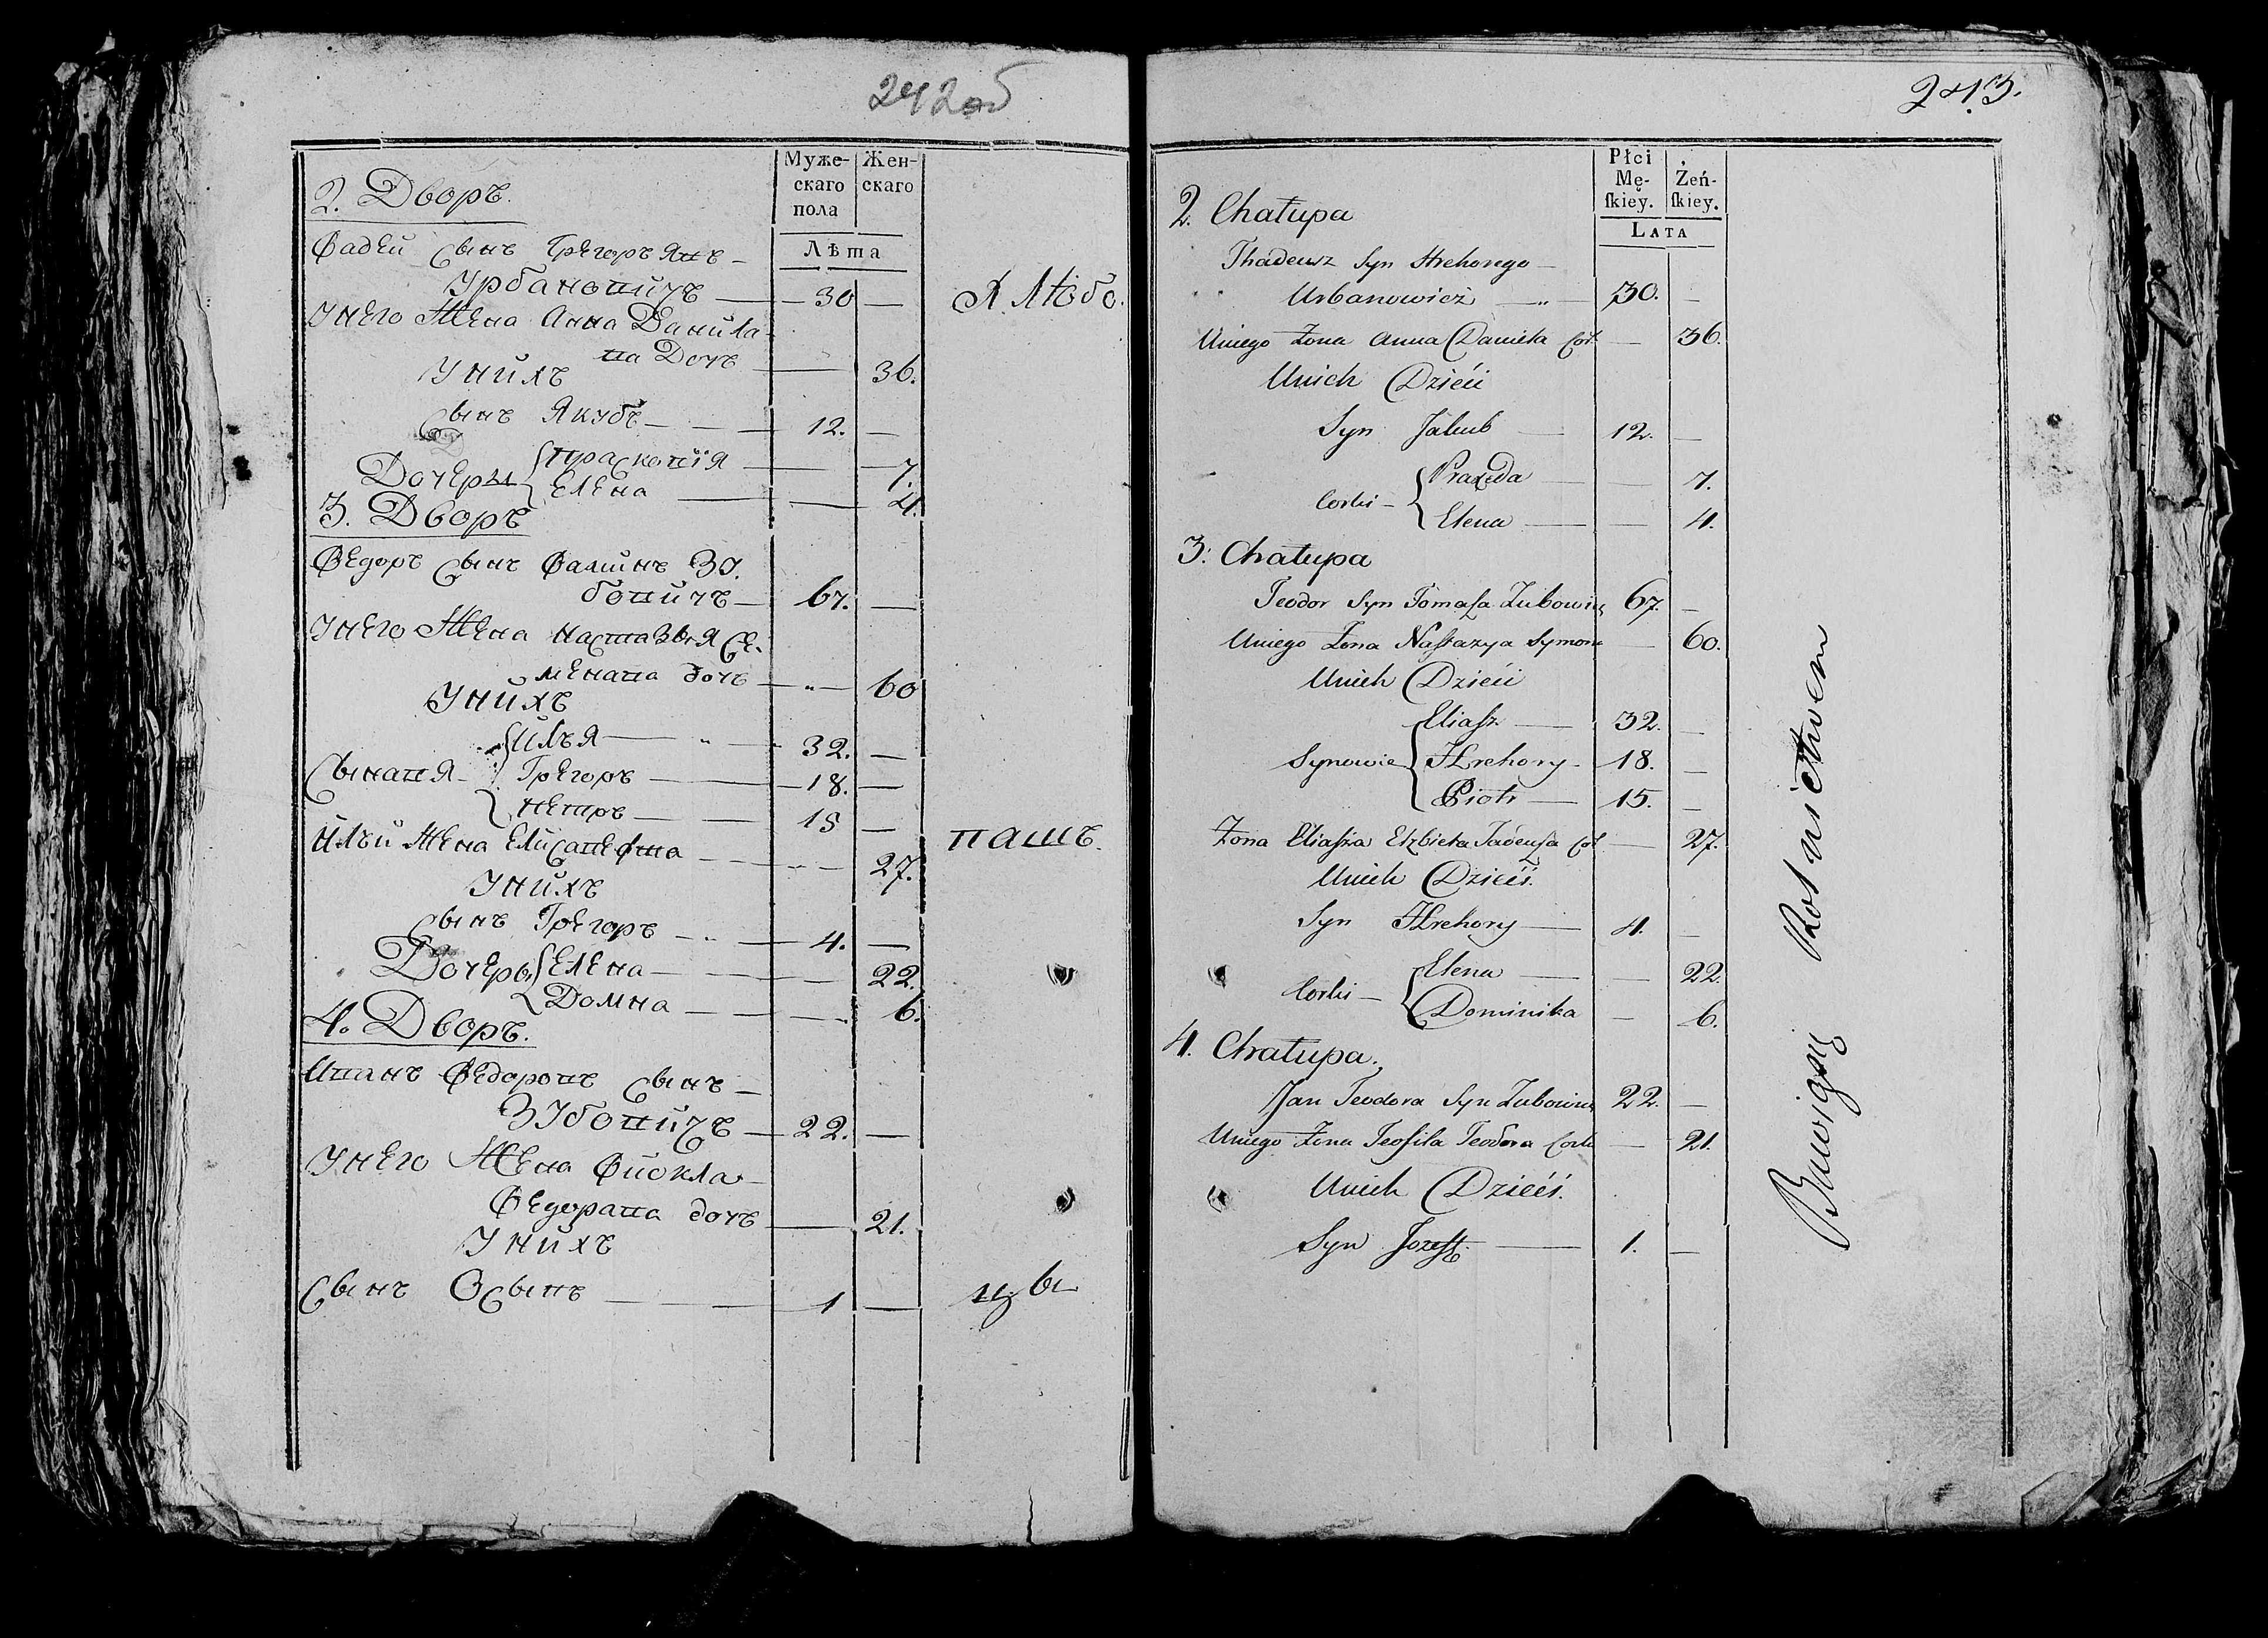 242об
Муже-
скаго
пола
Жен-
скаго
Лѣта
2. Дворъ.
Фадей Сынъ Грегорьявъ
Урбановичъ — 30 —
Унего Жена Анна Данила
ва Дочь — 36.
Унихъ
Сынъ Якубъ — 12. —
Дочеры Прасковія — 7.
Елена — 4.
3. Дворъ
Федоръ Сынъ Фаминъ Зу.
бовичъ — 67. —
Унего Жена Настазыя Се.
менава дочь — 60
Унихъ
Илья — 32. —
Сынавя Грегоръ — 18. —
Петръ — 15 —
Ильи Жена Елисавефта — 27.
Унихъ
Сынъ Грегоръ — 4. —
Дочеры Елена — 22.
Домна — 6.
4. Дворъ.
Иванъ Федоровъ Сынъ
Зубовичъ — 22. —
Унего Жена Фиокла
Федорава дочь — 21.
Унихъ
Сынъ Осыпъ — 1 —
вашъ.
243.
Płci
Mę-
ſkiey.
Żeń-
ſkiey.
LATA
2. Chałupa
Thadeusz Syn Hrehorego
Urbanowicz — 30. —
Uniego Żona Anna Daniela Cor. — 36.
Unich Dzieći
Syn Jakub — 12. —
Corki Praxeda — 7.
Elena — 4.
3. Chałupa
Teodor Syn Tomaſa Zubowicz 67. —
Uniego Żona Naſtazya Symona — 60.
Unich Dzieći
Eliaſz — 32. —
Synowie Hrehory — 18. —
Piotr — 15. —
Żona Eliaſza Elzbieta Tadeuſa Cor — 27.
Unich Dzieći.
Syn Hrehory — 4. —
Corki Elena — 22.
Dominika — 6.
4. Chałupa.
Jan Teodora Syn Zubowicz 22. —
Uniego Żona Teofila Teodora Corka — 21.
Unich Dzieći.
Syn Jozeff — 1. —